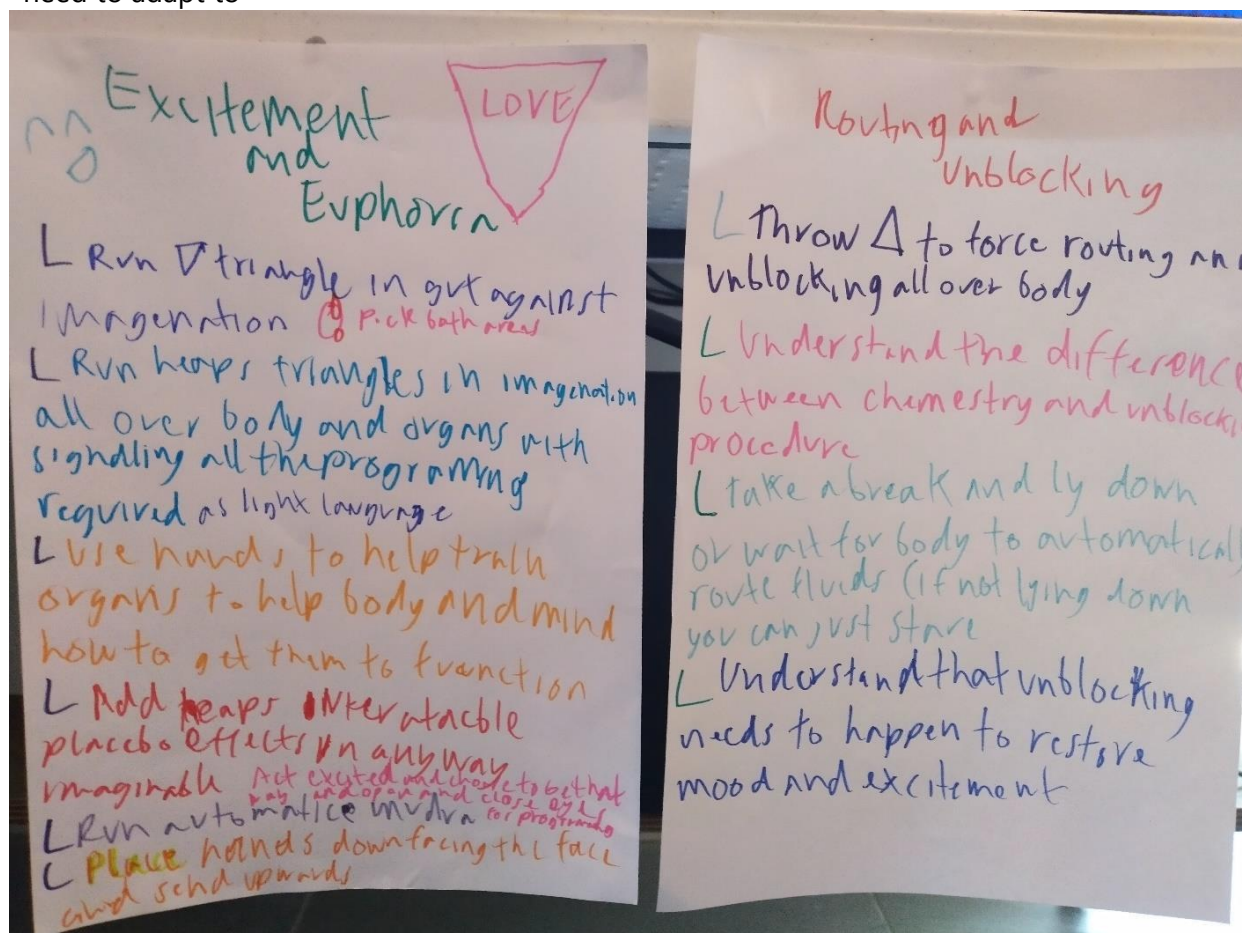 need to adapt to
Excitement
and
Euphoria
LOVE
Run ∇ triangle in gut against
imagenation Pick both areas
Run heaps triangles in imagenation
all over body and organs with
signalling all the programing
required as light language
Use hands to help train
organs to help body and mind
how to get them to function
Add heaps
placebo effects in anyway
imaginable Act excited and choose to be that
way and open and close eyes
for programing
Run automatice mudra
Place hands down facing the face
and send upwards
Routing and
Unblocking
Throw Δ to force routing an
unblocking all over body
Understand the difference
between chemestry and unblocki
procedure
take a break and ly down
or wait for body to automatical
route fluids (if not lying down
you can just stare
Understand that unblocking
needs to happen to restore
mood and excitement